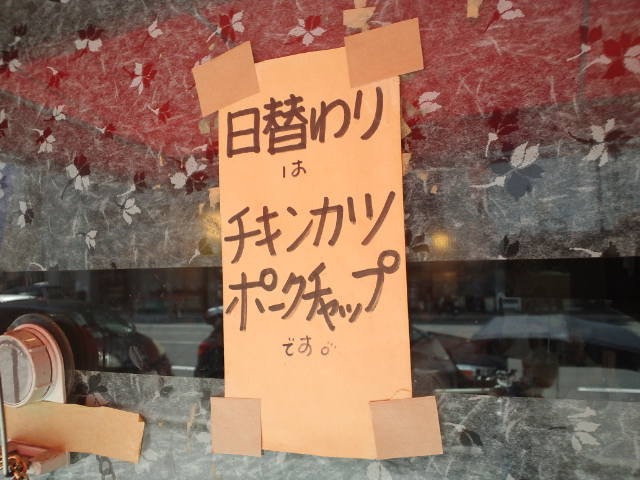 日替わり
は
チキンカツ
ポークチャップ
です。